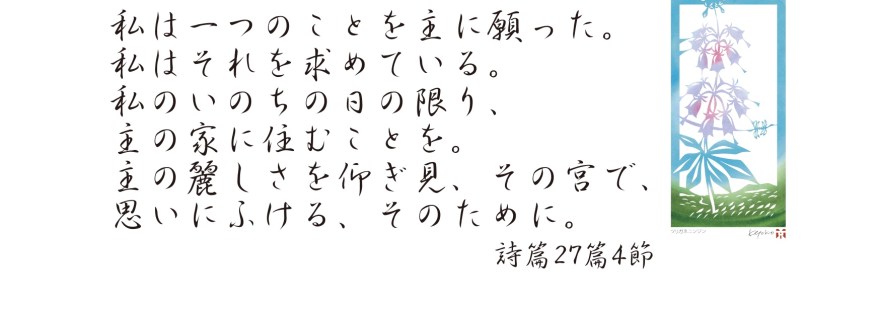 私は一つのことを主に願った。
私はそれを求めている。
私のいのちの日の限り、
主の家に住むことを。
主の麗しさを仰ぎ見、その宮で、
思いにふける、そのために。
詩篇27篇4節
ツリガネニンジン